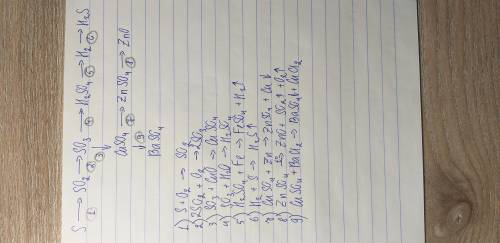 S → SO₂ → SO₃ → H₂SO₄ → H₂ → H₂S
① ② ③ ④ ⑤ ⑥
CuSO₄ → ZnSO₄ → ZnO
⑦ ⑧
↓ ⑨
BaSO₄
1) S + O₂ → SO₂
2) 2SO₂ + O₂ → 2SO₃
3) SO₃ + CuO → CuSO₄
4) SO₃ + H₂O → H₂SO₄
5) H₂SO₄ + Fe → FeSO₄ + H₂↑
6) H₂ + S → H₂S↑
7) CuSO₄ + Zn → ZnSO₄ + Cu↓
8) ZnSO₄ → ZnO + SO₂↑ + O₂↑
9) CuSO₄ + BaCl₂ → BaSO₄↓ + CuCl₂